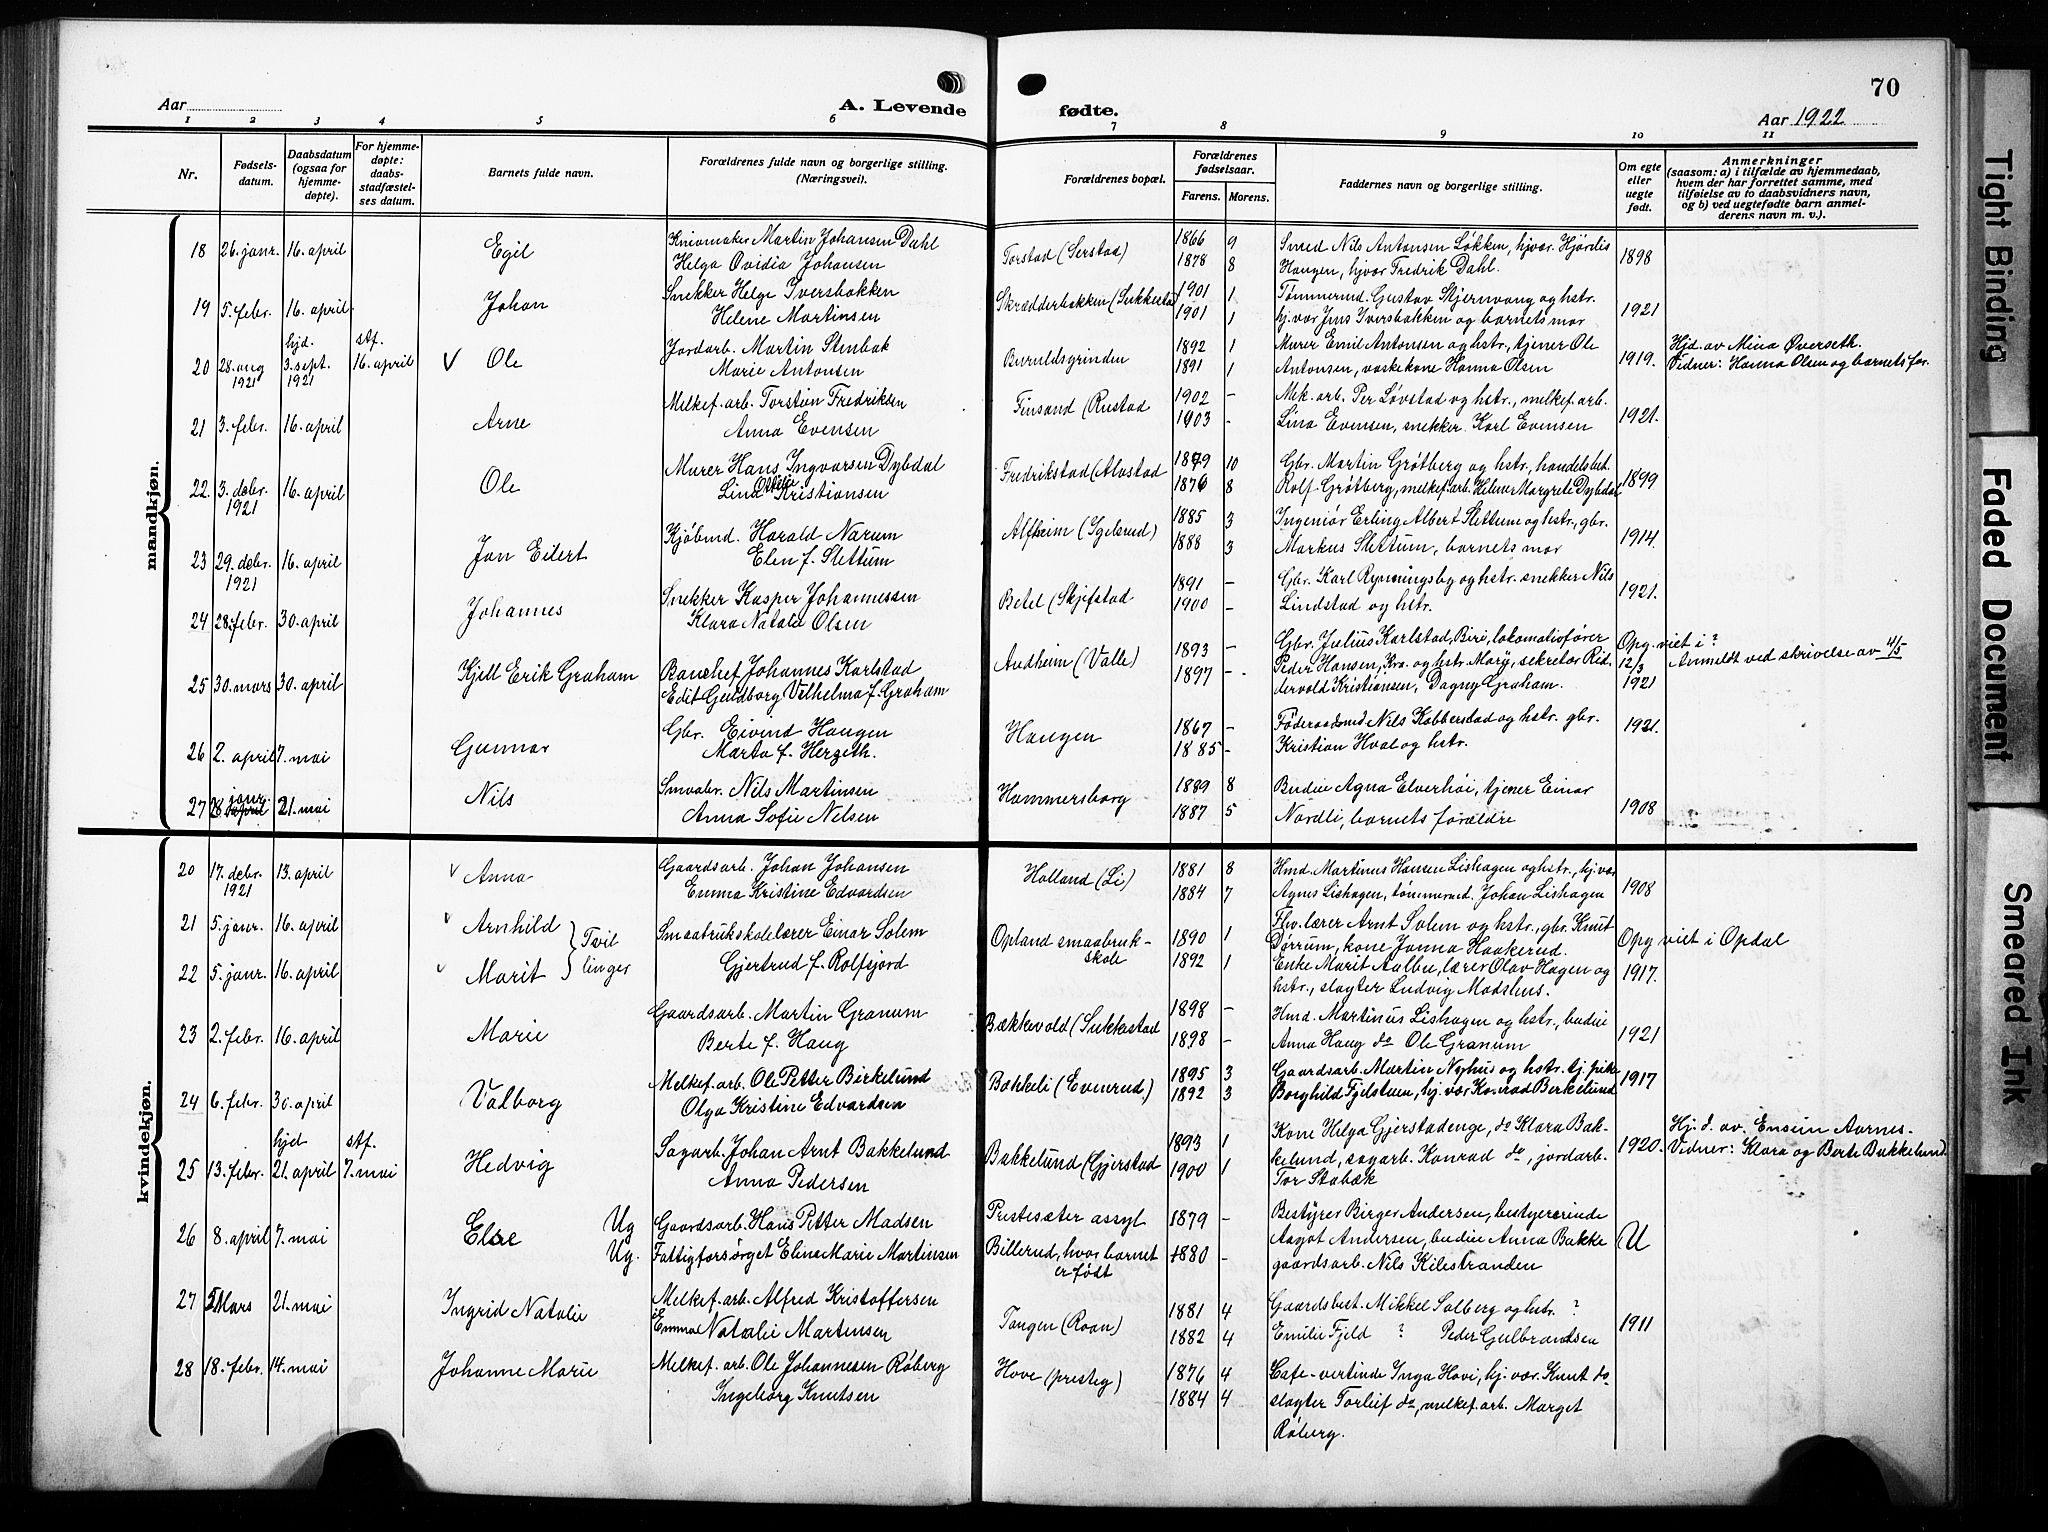 70
Aar
A. Levende fødte.
Aar 1922
1 2 3 4 5 6 7 8 9 10 11
Nr.
Fødselsdatum.
Daabsdatum (ogsaa for hjemmedøpte).
For hjemmedøpte: daabsstadfæstelses datum.
Barnets fulde navn.
Forældrenes fulde navn og borgerlige stilling. (Næringsvei).
Forældrenes bopæl.
Forældrenes fødselsaar.
Farens. Morens.
Faddernes navn og borgerlige stilling.
Om egte eller uegte født.
Anmerkninger
(saasom: a) i tilfælde av hjemmedaab,
hvem der har forrettet samme, med
tilføielse av to daabsvidners navn,
og b) ved uegtefødte barn anmelderens navn m. v.).
mandkjøn.
18 26. janr. 16. april Egil
Knivmaker Martin Johansen Dahl
Helga Ovidia Johansen
Torstad (Serstad)
1866 9
1878 8
Smed Nils Antonsen Løkken, hjvær. Hjørdis
Haugen, hjvær Fredrik Dahl.
1898
19 5. febr. 16. april Johan
Snekker Helge Iversbakken
Helene Martinsen
Skrædderbakken (Sukkestad
1901 1
1901 1
Tømmermd. Gustav Stjernvang og hstr.
hj.vær Jens Iversbakken og barnets mor
1921
20 28. aug 1921 hjd. 3. sept. 1921 stf. 16. april V Ole
Jordarb. Martin Stenbak
Marie Antonsen
Buruldsgrinden
1892 1
1891 1
Murer Emil Antonsen og hstr., tjener Ole
Antonsen, vaskekone Hanna Olsen
1919.
Hjd. av Mina Øverseth.
Vidner: Hanna Olsen og barnets far.
21 3. febr. 16. april Arne
Melkef. arb. Torstein Fredriksen
Anna Evensen
Finsand (Rustad
1902 –
1903 –
Mek. arb. Per Løvstad og hstr., melkef. arb.
Lina Evensen, snekker Karl Evensen
1921.
22 3. debr. 1921 16. april Ole
Murer Hans Ingvarsen Dybdal
Lina Otelie Kristiansen
Fredrikstad (Alvstad
1879 10
1876 8
Gbr. Martin Grøtberg og hstr., handelsbet.
Rolf Grøtberg, melkef. arb. Helmer Margrete Dybdal
1899
23 29. debr. 1921 16. april Jan Eilert
Kjøbmd. Harald Narum
Elen f. Slettum
Alfheim (Igelsrud)
1885 3
1888 3
Ingeniør Erling Albert Slettum og hstr., gbr.
Markus Slettum, barnets mor
1914.
24 28. febr. 30. april Johannes
Snekker Kasper Johannessen
Klara Natalie Olsen
Betel (Skjefstad
1891 –
1900 –
Gbr. Karl Rynningsby og hstr. snekker Nils
Lindstad og hstr.
1921.
25 30. mars 30. april Kjell Erik Graham
Banchef Johannes Karlstad
Edit Guldborg Vilhelma f. Graham
Audheim (Valle)
1893 –
1897 –
Gbr. Julius Karlstad, Biri, lokomotivfører
Peder Hansen, Kra. og hstr. Mary, sekretær Rid.
dervold Kristiansen, Dagny Graham.
Opg. viet i ?
12/3 1921
Anmeldt ved skrivelse av 4/5
26 2. april 7. mai Gunnar
Gbr. Eivind Haugen
Marta f. Herseth.
Haugen
1867 –
1885 –
Føderaadsmd Nils Kobberstad og hstr. gbr.
Kristian Hval og hstr.
1921.
27 28 janr. april 21. mai Nils
Smaabr. Nils Martinsen
Anna Sofie Nilsen
Hammersborg
1889 8
1887 5
Budeie Agna Elverhøi, tjener Einar
Nordli, barnets forældre
1908
kvindekjøn.
20 17. debr. 1921 13. april V Anna
Gaardsarb. Johan Johansen
Emma Kristine Edvardsen
Holland (Li)
1881 8
1884 7
Hmd. Martinus Hansen Lishagen og hstr., hj. vær
Agnes Lishagen, tømmermd. Johan Lishagen
1908
21 5. janr. 16. april V Arnhild
22 5. janr. 16. april V Marit
Tvillinger
Smaabrukskolelærer Einar Solem
Gjertrud f. Rolfsjord
Opland smaabrukskole
1890 1
1892 1
Fhv. lærer Arnt Solem og hstr., gbr. Knut
Dørrum, kone Janna Haakerud.
Enke Marit Aalbu, lærer Olav Hagen og
hstr., slagter Ludvig Madshus.
Opg viet i Opdal
1917.
23 2. febr. 16. april Marie
Gaardsarb. Martin Granum
Berte f. Haug
Bækkevold (Sukkestad
1898 –
1898 –
Hmd. Martinus Lishagen og hstr., budeie
Anna Haug do Ole Granum
1921
24 6. febr. 30. april Valborg
Melkef. arb. Ole Petter Birkelund
Olga Kristine Edvardsen
Bakkeli (Evenrud.)
1895 3
1892 3
Gaardsarb. Martin Nyhus og hstr. tj. pike
Borghild Fjelstuen, hj. vær Konrad Birkelund
1917
25 13. febr. hjd 21. april stf. 7. mai Hedvig
Sagarb. Johan Arnt Bakkelund
Anna Pedersen
Bakkelund (Gjerstad
1893 1
1900 1
Kone Helga Gjerstadenge, do Klara Bak-
kelund, sagarb. Konrad do, jordarb.
Tor Stabæk
1920.
Hj. d. av. Ensein Aarnes.
Vidner: Klara og Berte Bakkelund
26 8. april 7. mai Else
Ug Gaardsarb. Hans Petter Madsen
Ug. Fattigforsørget Eline Marie Martinsen
Prestesæter assyl
Billerud, hvor barnet er født
1879 –
1880 –
Bestyrer Birger Andersen, bestyrerinde
Aagot Andersen, budeie Anna Bakke
gaardsarb. Nils Kilestranden
U
27 5 Mars 21. mai Ingrid Natalie
Melkef. arb. Alfred Kristoffersen
Emma Natalie Martinsen
Tangen (Roan)
1881 4
1882 4
Gaardsbest. Mikkel Solberg og hstr. ?
Emilie Fjeld ? Peder Gulbrandsen
1911
28 18. febr. 14. mai Johanne Marie
Melkef. arb. Ole Johannesen Røberg
Ingeborg Knutsen
Hove (presteg)
1876 4
1884 4
Cafe-vertinde Inga Hovi, hj. vær. Knut do
slagter Torleif do, melkef. arb. Marget
Røberg.
Tight Binding
Faded Document
Smeared Ink